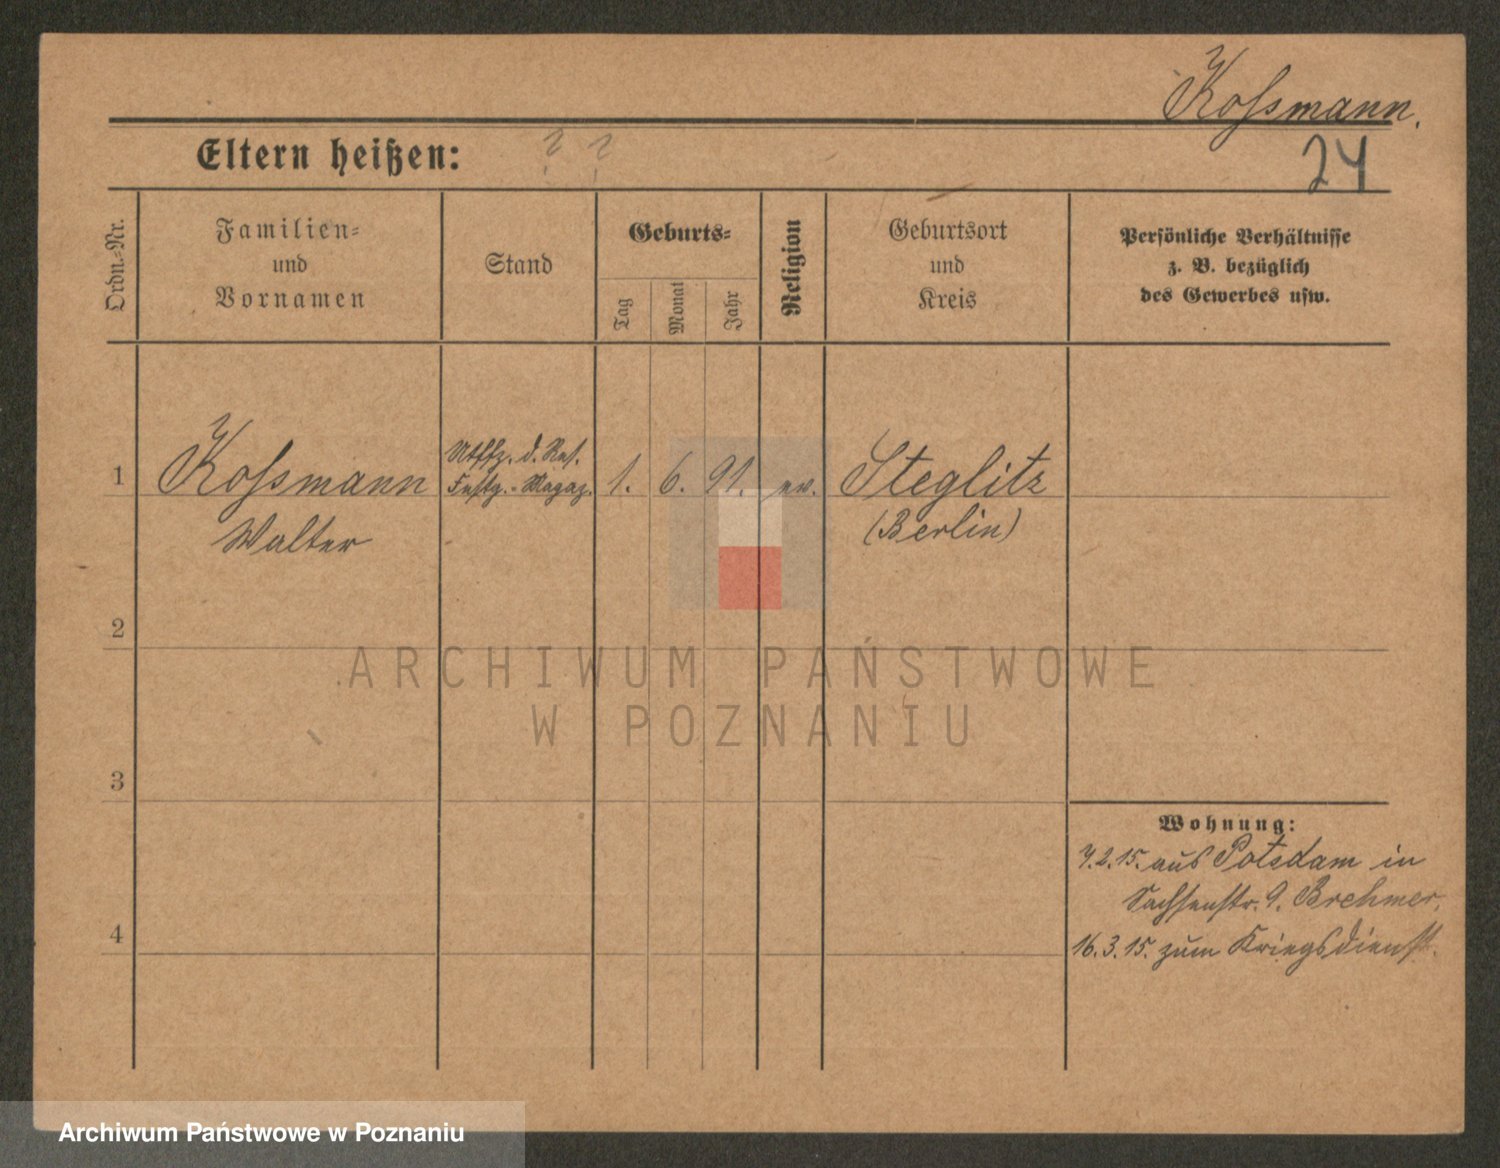 Kossmann.
Eltern heißen: ? ?
24
Ordn.-Nr.
Familien-
und
Vornamen
Stand
Geburts-
Tag
Monat
Jahr
Religion
Geburtsort
und
Kreis
Persönliche Verhältnisse
z. B. bezüglich
des Gewerbes usw.
1
Kossmann
Walter
Utffz. d. Res.
Festg.-Magaz.
1. 6. 91. ev.
Steglitz
(Berlin)
2
3
4
Wohnung:
7.2.15. aus Potsdam in
Sachsenstr. 9. Brehmer.
16.3.15. zum Kriegsdienst.
ARCHIWUM PAŃSTWOWE
W POZNANIU
Archiwum Państwowe w Poznaniu